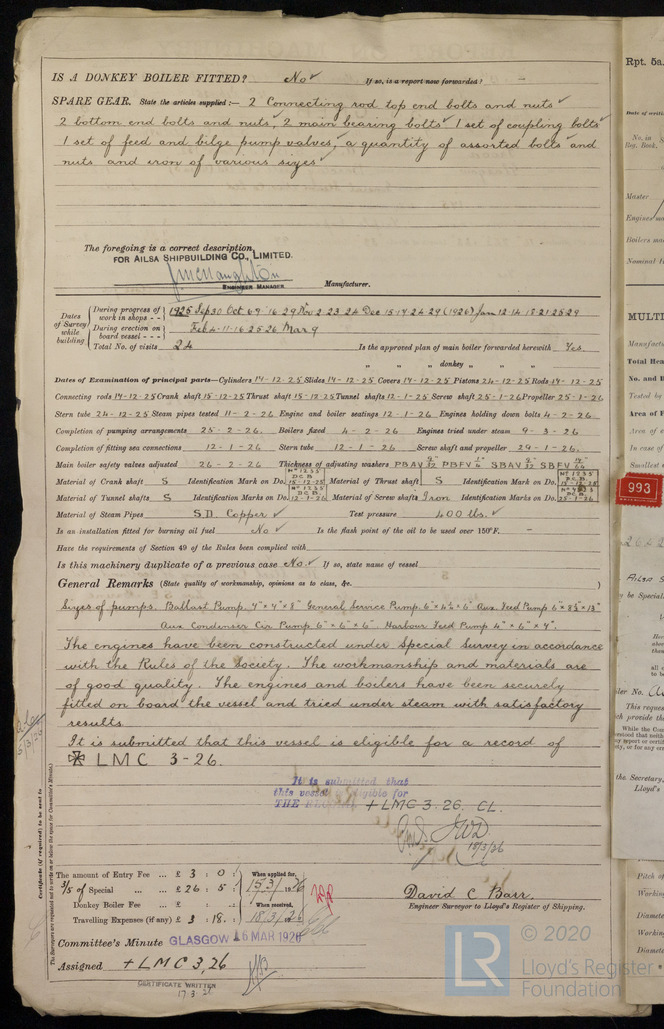 IS A DONKEY BOILER FITTED? No ✓ If so, is a report now forwarded? –
SPARE GEAR. State the articles supplied:— 2 Connecting rod top end bolts and nuts ✓
2 bottom end bolts and nuts, 2 main bearing bolts ✓ 1 set of coupling bolts ✓
1 set of feed and bilge pump valves, a quantity of assorted bolts and
nuts and iron of various sizes ✓
The foregoing is a correct description,
FOR AILSA SHIPBUILDING CO., LIMITED.
ENGINEER MANAGER Manufacturer.
Dates of Survey while building
During progress of work in shops - - 1925 Sep 30 Oct 6 9 16 29 Nov 2 23 24 Dec 15 17 24 29 (1926) Jan 12 14 18 21 25 29
During erection on board vessel - - - Feb 4 11 16 25 26 Mar 9
Total No. of visits 24 Is the approved plan of main boiler forwarded herewith Yes.
" " " donkey " " "
Dates of Examination of principal parts—Cylinders 14-12-25 Slides 14-12-25 Covers 14-12-25 Pistons 24-12-25 Rods 14-12-25
Connecting rods 14-12-25 Crank shaft 15-12-25 Thrust shaft 15-12-25 Tunnel shafts 12-1-26 Screw shaft 25-1-26 Propeller 25-1-26
Stern tube 24-12-25 Steam pipes tested 11-2-26 Engine and boiler seatings 12-1-26 Engines holding down bolts 4-2-26
Completion of pumping arrangements 25-2-26. Boilers fixed 4-2-26 Engines tried under steam 9-3-26
Completion of fitting sea connections 12-1-26 Stern tube 12-1-26 Screw shaft and propeller 29-1-26.
Main boiler safety valves adjusted 26-2-26 Thickness of adjusting washers PBAV 9/32 PBFV 1/4 SBAV 9/32 SBFV
Material of Crank shaft S Identification Mark on Do. No 1235 D.C.B. 15-12-25 Material of Thrust shaft S Identification Mark on Do. No 1235 D.C.B. 15-12-25
Material of Tunnel shafts S Identification Marks on Do. No 1235 D.C.B. 12-1-26 Material of Screw shafts Iron Identification Marks on Do. D.C.B. 25-1-26
Material of Steam Pipes S.D. Copper ✓ Test pressure 400 lbs. ✓
Is an installation fitted for burning oil fuel No ✓ Is the flash point of the oil to be used over 150°F. –
Have the requirements of Section 49 of the Rules been complied with
Is this machinery duplicate of a previous case No. ✓ If so, state name of vessel
General Remarks (State quality of workmanship, opinions as to class, &c. )
Sizes of pumps. Ballast Pump. 7" x 7" x 8" General Service Pump. 6" x 4½" x 6" Aux. Feed Pump 6" x 8½" x 13"
Aux Condenser Cir Pump 6" x 6" x 6". Harbour Feed Pump 4" x 6" x 7".
The engines have been constructed under Special Survey in accordance
with the Rules of the Society. The workmanship and materials are
of good quality. The engines and boilers have been securely
fitted on board the vessel and tried under steam with satisfactory
results.
It is submitted that this vessel is eligible for a record of
✠ LMC 3-26.
It is submitted that
this vessel is eligible for
THE RECORD + LMC 3.26. CL.
15/3/26
Certificate (if required) to be sent to
The Surveyors are requested not to write on or below the space for Committee's Minute.
The amount of Entry Fee ... £ 3 : 0 : When applied for,
3/5 of Special ... ... £ 26 : 5 : 15/3/1926
Donkey Boiler Fee ... £ : : When received,
Travelling Expenses (if any) £ 3 : 18. : 18/3/26
David C Barr.
Engineer Surveyor to Lloyd's Register of Shipping.
Committee's Minute GLASGOW 16 MAR 1926
Assigned + LMC 3,26
CERTIFICATE WRITTEN
17.3.26
Rpt. 5a.
No. in
Reg. Book.
Master
Boilers
Nominal
MULTI
Total Hea
No. and
Tested by
Area of
Area of
In case of
Smallest
993
AILSA
be Special
This reques
the Secretary.
Lloyd's
Pitch of
Working
Diamete
Working
Diamete
LR
© 2020
Lloyd's Register
Foundation